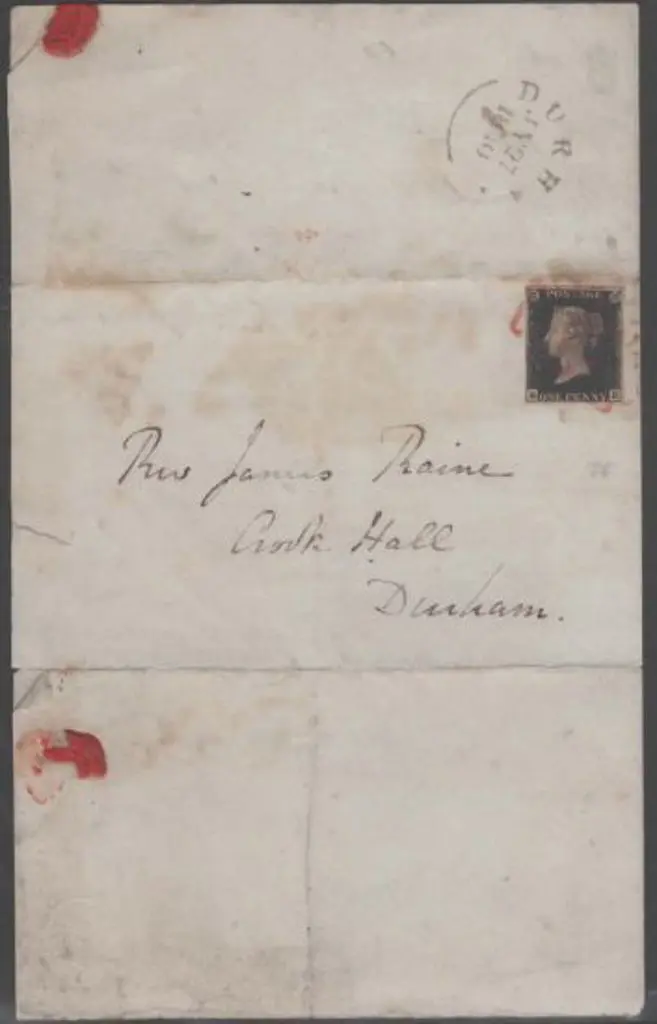 DURH
POSTAGE
ONE PENNY
Rev James Raine
Crook Hall
Durham.